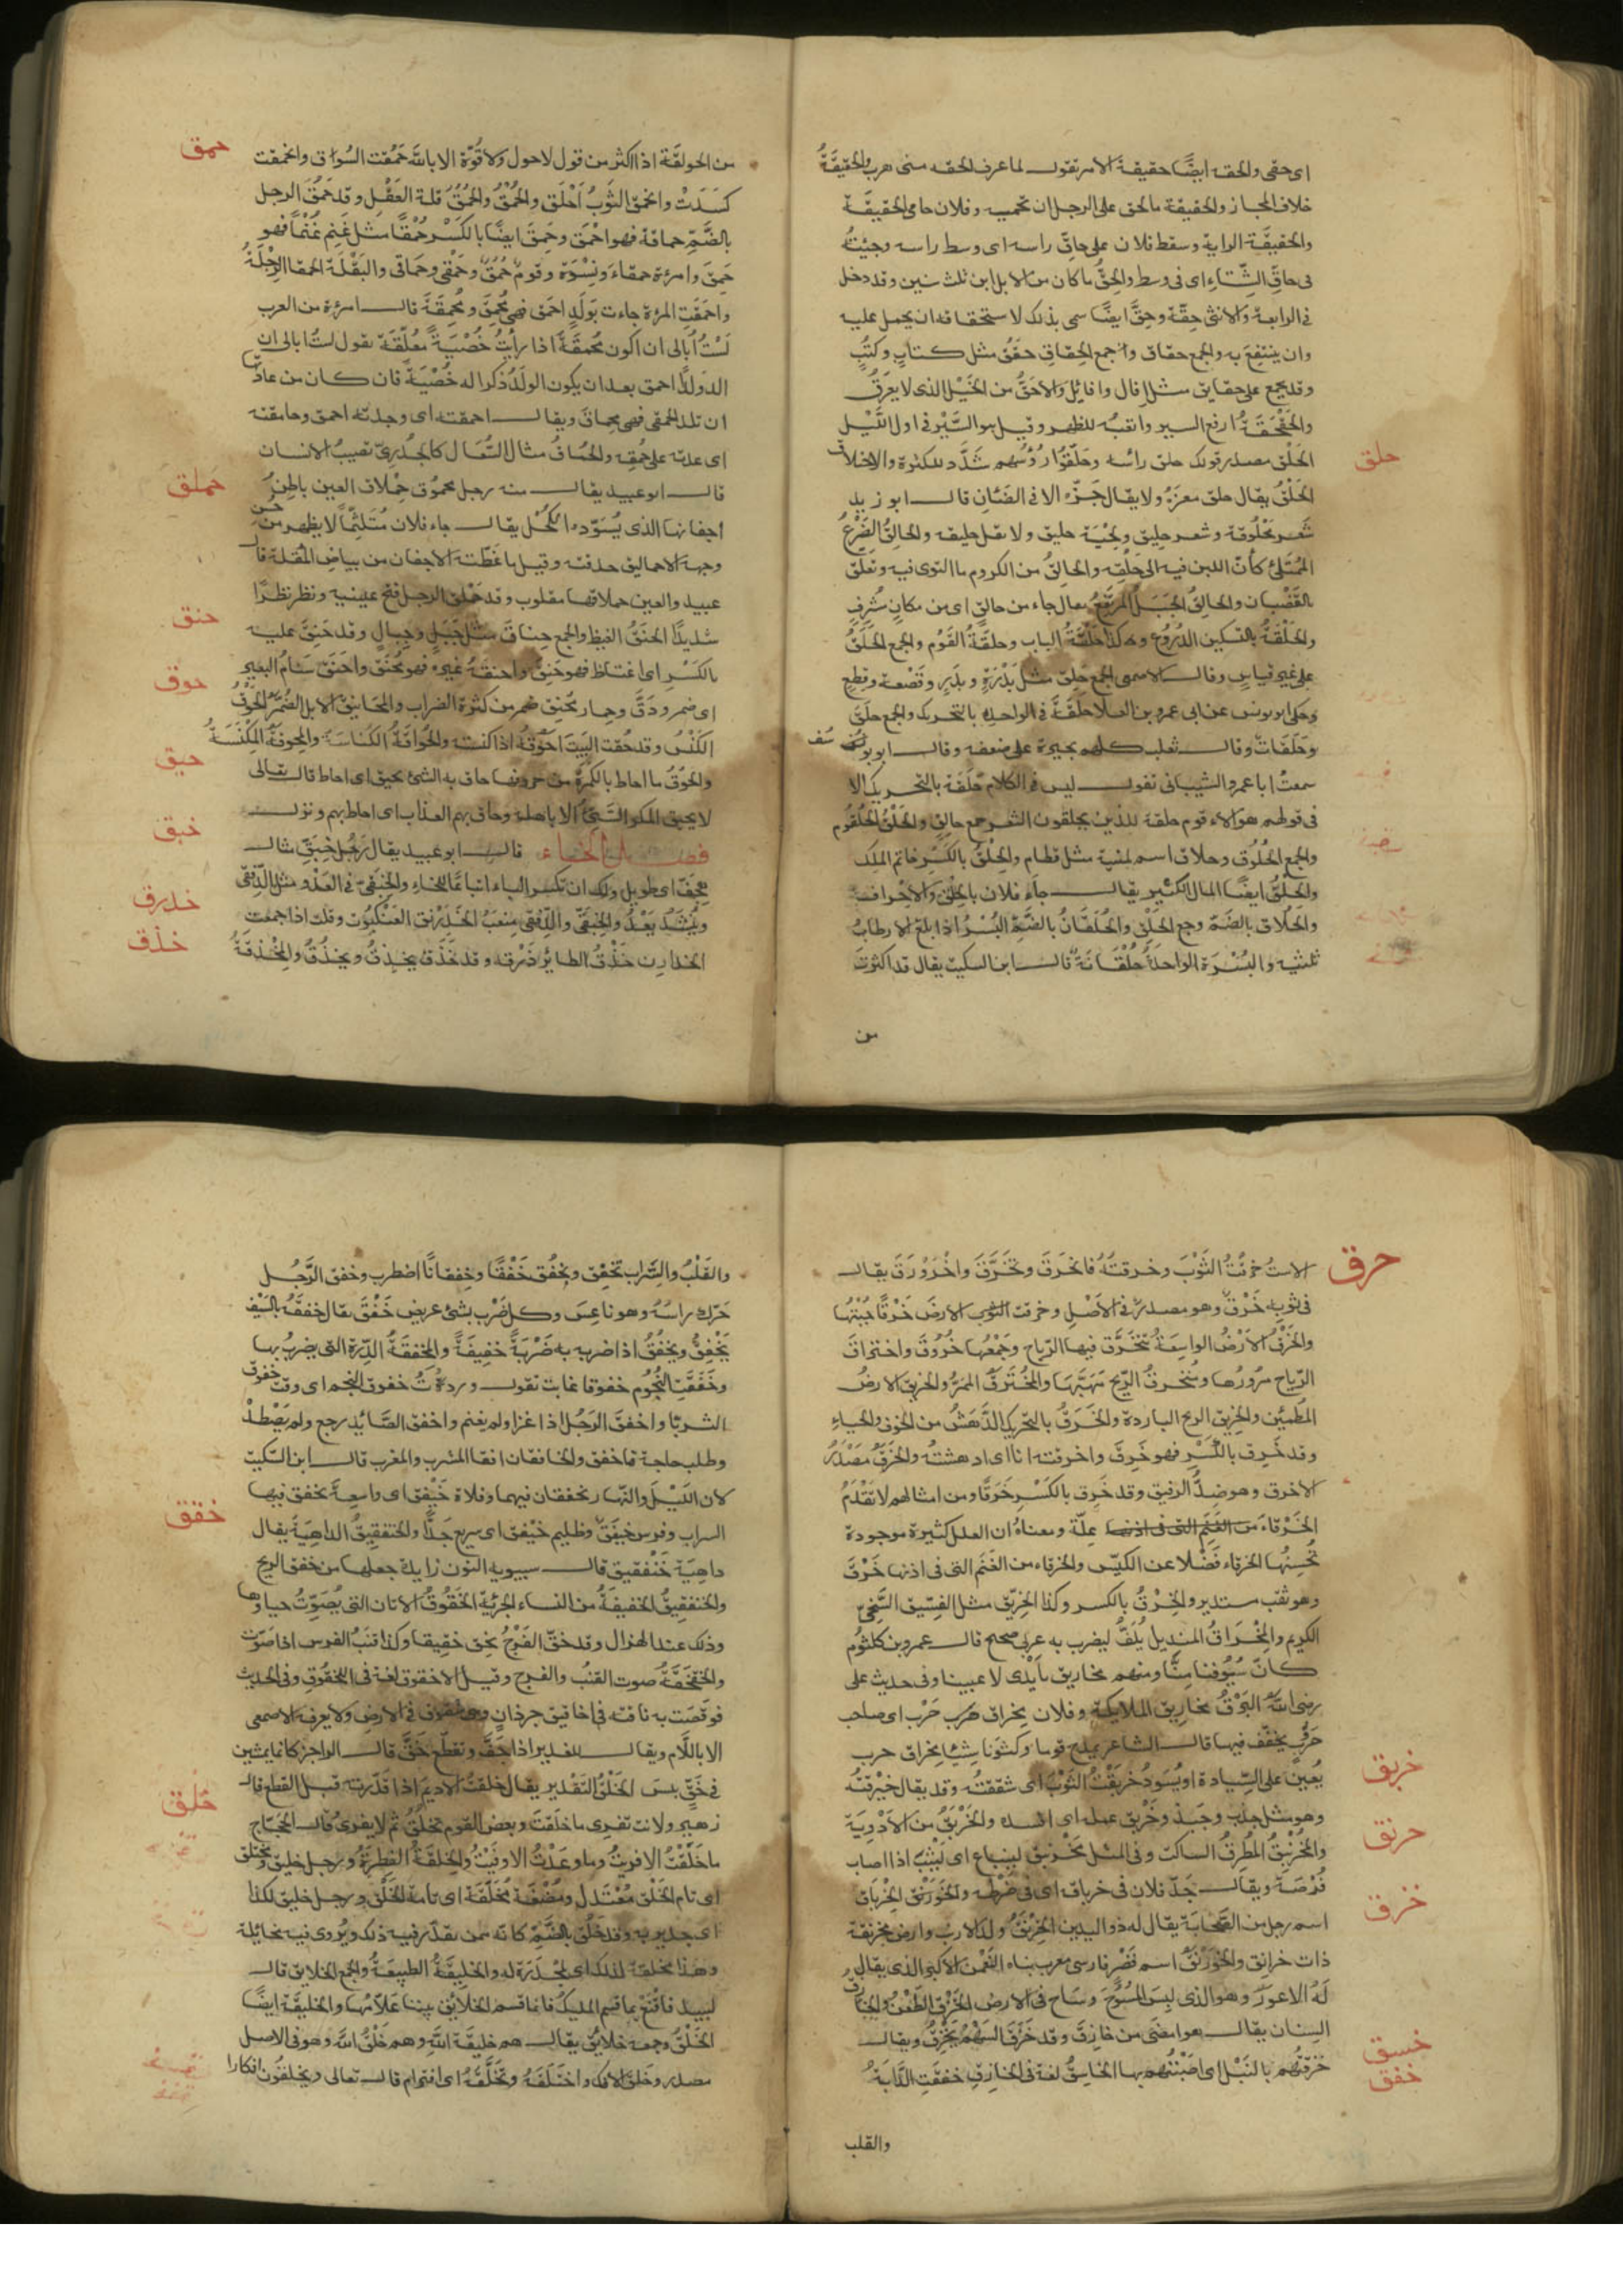 اى حقى والحقه ايضًا حقيقة الامر تقول لما عرف الحقه منى هرب والحقيقَةُ
خلاف المجاز والحقيقة ما يحق على الرجل ان يحميه وفلان حامى الحقيقَة
والحقيقَة الراية وسقط فلان على حاقّ راسه اى وسط راسه وجيتُهُ
فى حاقّ الشِّتاءِ اى فى وسط والحِقُّ ما كان من الابل ابن ثلث سنين وقد دخل
فى الرابعة والانثى حِقّة وحِقَّ ايضًا سمى بذلك لاستحقاقه ان يحمل عليه
وان ينتفِعَ به والجمع حقاق وجمع الحِقاقِ حقَقُ مثل كتابٍ وكتُبٍ
وقد يجمع على حقايق مثل افال وافايل والاحَقُّ من الخَيْل الذى لا يعرَقُ
والحَقْحَقَةُ ارفع السير واتعبُه للظهر وقيل هو السَّيْر فى اول اللَّيْل
حلق
الحَلْق مصدر قولك حلق رأسه وحَلّقُوا رُؤُسَهم شَدَّد للكثرة والاحتلاق
الحَلْقُ يقال حلق معزَهُ ولا يقال جَزّه الا فى الضَانِ قال ابو زيد
شَعَر مَحْلُوقة وشعر حليق ولِحْيَة حليق ولا تقل حليقه والحالِقُ الضَّرْعُ
المُمْتَلِئُ كأنّ اللبن فيه الى حَلْقِه والحالِقُ من الكروم ما التوى فيه وتعلّق
بالقُضْبان والحالِقُ الجَبَلُ المُرتَفعُ يقال جاء من حالقٍ اى من مكانٍ مُشْرِفٍ
والحَلْقَةُ بالتسكين الدُرُوع وهكذا حَلْقَةُ الباب وحلقةُ القَوْم والجمع الحَلَقُ
على غير قياسٍ وقال الاصمعى الجمع حِلَق مثل بَدْرَةٍ وبِدَرٍ وقَصْعة وقِصَعٍ
وحكى يونس عن ابى عمرو بن العلاء حَلَقَة فى الواحد بالتحريك والجمع حلَق
وحَلَقَات وقال ثعلب كلهم يجيزه على ضعفه وقال ابو يوسف
سمعتُ ابا عمرو الشيبانى تقول ليس فى الكلام حَلَقَة بالتحريك الا
فى قولهم هولاء قوم حلقة للذين يحلقون الشعر جمع حالق والحَلْقُ الحُلقُوم
والجمع الحُلُوق وحلاق اسم لمنية مثل قطام والحِلْقُ بالكَسْرِ خاتم الملِك
والحِلْقُ ايضًا المال الكثير يقال جآء فلان بالحِلْق والاحراف
والحُلاق بالضَمّ وجع الحَلْقِ والحُلقانُ بالضَّمِّ البُسْرُ اذا بلغ الارطابُ
ثلثيه والبُسْرَة الواحدةُ حُلْقَانَةٌ قال ابن السكيت يقال قد اكثرتَ
من
حمق
من الحولقَة اذا اكثر من قول لا حول ولا قُوّة الا بالله حَمُقت السُّوق وانحمقت
كسَدَتْ وانحمق الثَوبُ اَخْلَق والحُمْقُ والحُمُقُ قلة العَقْل وقد حَمُقَ الرجل
بالضَّمِّ حماقة فهو احْمَق وحَمِقَ ايضًا بالكَسْر حُمْقًا مثل غَنِم غُنْمًا فهو
حَمِق وامرءة حمقاء ونِسْوَة وقوم حُمُق وحَمْقى وحَمَاقى والبَقْلَة الحمقا الرِجْلَةُ
واحمَقَتِ المرءة جاءت بَولَدٍ احمق فهى مُحْمِق ومُحْمِقَة قالت امرءة من العرب
لسْتُ اُبالى ان اكون مُحْمِقَةً اذا رأيتُ خُصْيَةً مُعلّقَة تقول لستُ ابالى ان
الد ولدًا احمق بعد ان يكون الولَدُ ذكرًا له خُصْيَة فان كان من عادتها
ان تلد الحمقى فهى محماق ويقال احمقته اى وجدته احمق وحامقته
حملق
اى عدته على حمقه والحُمَاقُ مثال السُّعَال كالجُدَرِىّ تصيبُ الانسان
قال ابو عبيد يقال منه رجل محموُق حِملاق العين باطِنُ
اجفانها الذى يُسَوّده الكُحْل يقال جاء فلان مُتَلَثِّمًا لا يظهر من حسن
وجهه الا حماليق حدقته وقيل ما غَطّته الاجفان من بياضِ المُقلة قال
عبيد والعين حملاقها مقلوب وقد حَملَق الرجل فتح عينيه ونظر نظرًا
حنق
شديدًا الحنَقُ الغيظ والجمع حِناق مثل جَبَلٍ وجِبالٍ وقد حَنِق عليه
بالكَسْرِ اى اغتاظ فهو حَنِقٌ واحنقهُ غيره فهو مُحْنَق واحنَقَ سَنامُ البعير
حوق
اى ضمر ودَقَّ وحمار مُحْنِق ضمر من كثرة الضراب والمحانيقُ الابل الضُمَّر الحَوْقُ
الكَنْسُ وقد حُقْت البَيتَ اَحُوقهُ اذا كنسته والحُوَاقَةُ الكُنَاسَة والمِحوقةُ المِكْنَسَةُ
حيق
والحُوْقُ ما احاط بالكمرة من حروفها حاق به الشئ يحيق اى احاط قال تعالى
لا يحيق المكر السَّيِّئُ الا باهله وحاق بهم العذاب اى احاط بهم ونزل
خبق
فصل الخاء قال ابو عبيد يقال رَجُل خِبَقّ مثال
هِجَفّ اى طويل ولك ان تكسر الباء اتباعًا للخاء والخِبقى فى العَدْو مثل الدِّفقى
خدرق
وينشَدُ يَعْدُ والخِبِقَّى والدِّفِقَّى مِنعَبُ الخَدَرْنَق العَنْكَبُوت وقلت اذا جمعت
خذق
الخدارن خَذْقُ الطائر ذَرْقه وقد خَذَق يخذِقُ ويخذُق والمِخْذَقَةُ
حرق
الاست خرقْتُ الثَوْبَ وخرقتهُ فانخرَقَ وتخَرَّقَ واخْرَوْرَقَ يقال
فى ثوبه خَرْق وهو مصدر فى الاَصْلِ وخرقت الثوب الارضَ خَرْقًا جُبْتُها
والخَرْقُ الارْضُ الواسِعَةُ تتخَرَّق فيها الرّياح وجَمْعُها خُرُوق واختراق
الرّياح مرُورُها ومُنْخرقُ الرّيح مَهَبُّها والمُخْتَرَقُ المَمَرُّ والخريقُ الارضُ
المطمئِن والخريق الريح الباردة والخَرَقُ بالتحريك الدَّهَشُ من الخوف والحياءِ
وقد خَرِق بالكَسْرِ فهو خَرِق واخرقته انا اى ادهشتُه والخرَقُ مَصْدَرُ
الاخرق وهو ضِدُّ الرفيق وقد خَرِق بالكَسْرِ خَرَقًا ومن امثالهم لا تَعْدَمُ
الخَرْقاءُ من الغَنَم التى فى اذنها عِلّة ومعناهُ ان العلل كثيرة موجودة
تُحسنُها الخرقاء فَضْلًا عن الكيّس والخرقاء من الغَنَم التى فى اذنها خَرْق
وهو ثقب مستدير والخِرْقُ بالكسر وكذا الخِرّيق مثل الفِسّيق السَّخِىُّ
الكريم والمِخْرَاقُ المنديل يُلَفُّ ليضرب به عربى صحيح قال عمرو بن كلثوم
كانّ سُيُوفنا مِنّا ومنهم مخاريق بايْدى لاعبينا وفى حديث على
رضى الله البَرْقُ مخاريق الملائكة وفلان مِخراق حرب حَرْب اى صاحب
حَرْبٍ يخفّف فيها قال الشاعر يمدح قوما وكثونا شيئا مخراق حرب
خربق
يُعينُ على السِّيادة او يَسُودُ خَربَقْتُ الثَوْبَ اى شققتُه وقد يقال خَبْرقتُه
وهو مثل جذب وجَبَذ وخَرْبق عمله اى افسده والخَرْبَقُ من الاَدْوِيَة
حرنق
والمُخْرَنْبِقُ المُطْرِقُ الساكت وفى المثل مُخْرَنبق لينباع اى ليَثِبَ اذا اصاب
فُرْصَة ويقال جَدّ فلان فى خرباق اى فى ضَرْطِه والخَوَرْنَق الخِربَاق
خزق
اسم رجل من الصَّحَابَة يقال له ذو اليدين الخِرْنِقُ ولد الارنب وارض مخرنقة
ذات خرانق والخَوَرْنَقُ اسم قَصْر فارسى معرب بناه النُعْمن الاكبر الذى يقال
لَهُ الاعور وهو الذى لبِسَ المسُوحَ وسَاح فى الارض الخَزْق الطَّعْنُ والخازق
السنان يقال هو امضَى من خازِقٍ وقد خَزَق السَّهْمُ يَخْزِقُ ويقال
خسق
خفق
خَزَقتُهم بالنَبْل اى اصَبْتُهم بها الخاسِقُ لغة فى الخازِقِ خفقَتِ الدَّابّةُ
والقلب
والقَلْبُ والسَّرابُ تخفِق وتخفُق خَفْقًا وخَفَقانًا اضطرب وخفق الرَّجُل
حَرّك راسَهُ وهو ناعِسَ وكل ضَرْبٍ بشئ عريض خَفْق يقال خفقَهُ بالسَيْف
يَخْفِق ويخفُقُ اذا ضربه به ضَرْبَةً خَفِيفَةً والمِخْفَقَةُ الدِّرة التى يضربُ بها
وخَفَقَتِ النُّجُوم خفوقا غابت تقول وردتُ خفوق النجم اى وقت خفوق
الثريّا واخفقَ الرَجُل اذا غزا ولم يغنم واخفق الصَّائِد رجع ولم يَصْطَدْ
وطلب حاجة فاخفق والخافقان افقا المشرب والمغرب قال ابن السِّكيت
لان اللَيْلَ والنّهار يخفقان فيهما وفلاة خَيْفَق اى واسِعةً يخفق فيها
خفقق
السراب وفرس خيفَق وظليم خَيْفق اى سريع جدًّا والخنفقِيقُ الداهِيَةُ يقال
داهِيَة خَنْفقيق قال سيبويه النون زايدة جعلها من خفق الريح
والخنفقيقُ الخفيفَةُ من النساء الجرئيّة الخَقُوقُ الاتان التى يُصَوّتُ حياوها
وذلك عند الهزال وقد خقّ الفَرْجُ يخق خقيقا وكذا قنبُ الفرس اذا صَوّت
والخقخَقَةُ صوت القنُب والفرج وقيل الاخقوق لغة فى اللخقُوق وفى الحديث
فوَقَصَت به ناقته فى اخاقيق جرذانٍ وهى شقوق فى الارضِ ولا يعرفه الاصمعى
الا باللام ويقال للغدير اذا جَفَّ وتقطّع خَقَّ قال الراجز كانما يمشين
خلق
فى خَقّ يبس الخَلْقُ التَقْدير يقال خلقتُ الاديمَ اذا قَدّرته قبل القطع قال
زهير ولانت تفرى ما خلقتَ وبعض القوم يخلُقُ ثم لا يفرى قال الحَجّاج
ما خلقتُ الا فريتُ وما وعَدْتُ الا وَفَيْتُ والخِلقَةُ الفِطرَةُ ورجل خليق ومختلق
اى تام الخَلْق مُعْتَدل ومُضْغَة مُخَلّقَة اى تامة الخَلْق ورجل خليق لكذا
اى جدير به وقد خَلُق بالضَّمِّ كانه ممن يقدّر فيه ذلك ويُروى فيه مخائلة
وهذا مخلقة لذلك اى مَجْدَرَة له والخليقَةُ الطبيعَةُ والجمع الخلايق قال
لبيد فاقْنَعْ بما قسم المليكُ فانما قسم الخلائِق بيننا عَلّامُها والخليقَة ايضًا
الخَلْقُ وجمعه خلايُق يقال هم خليقَة الله وهم خَلْقُ الله وهو فى الاصل
مصدر وخلق الافك واختَلَقَهُ وتخَلّقَهُ اى افتراه قال تعالى ويخلقُون افكا